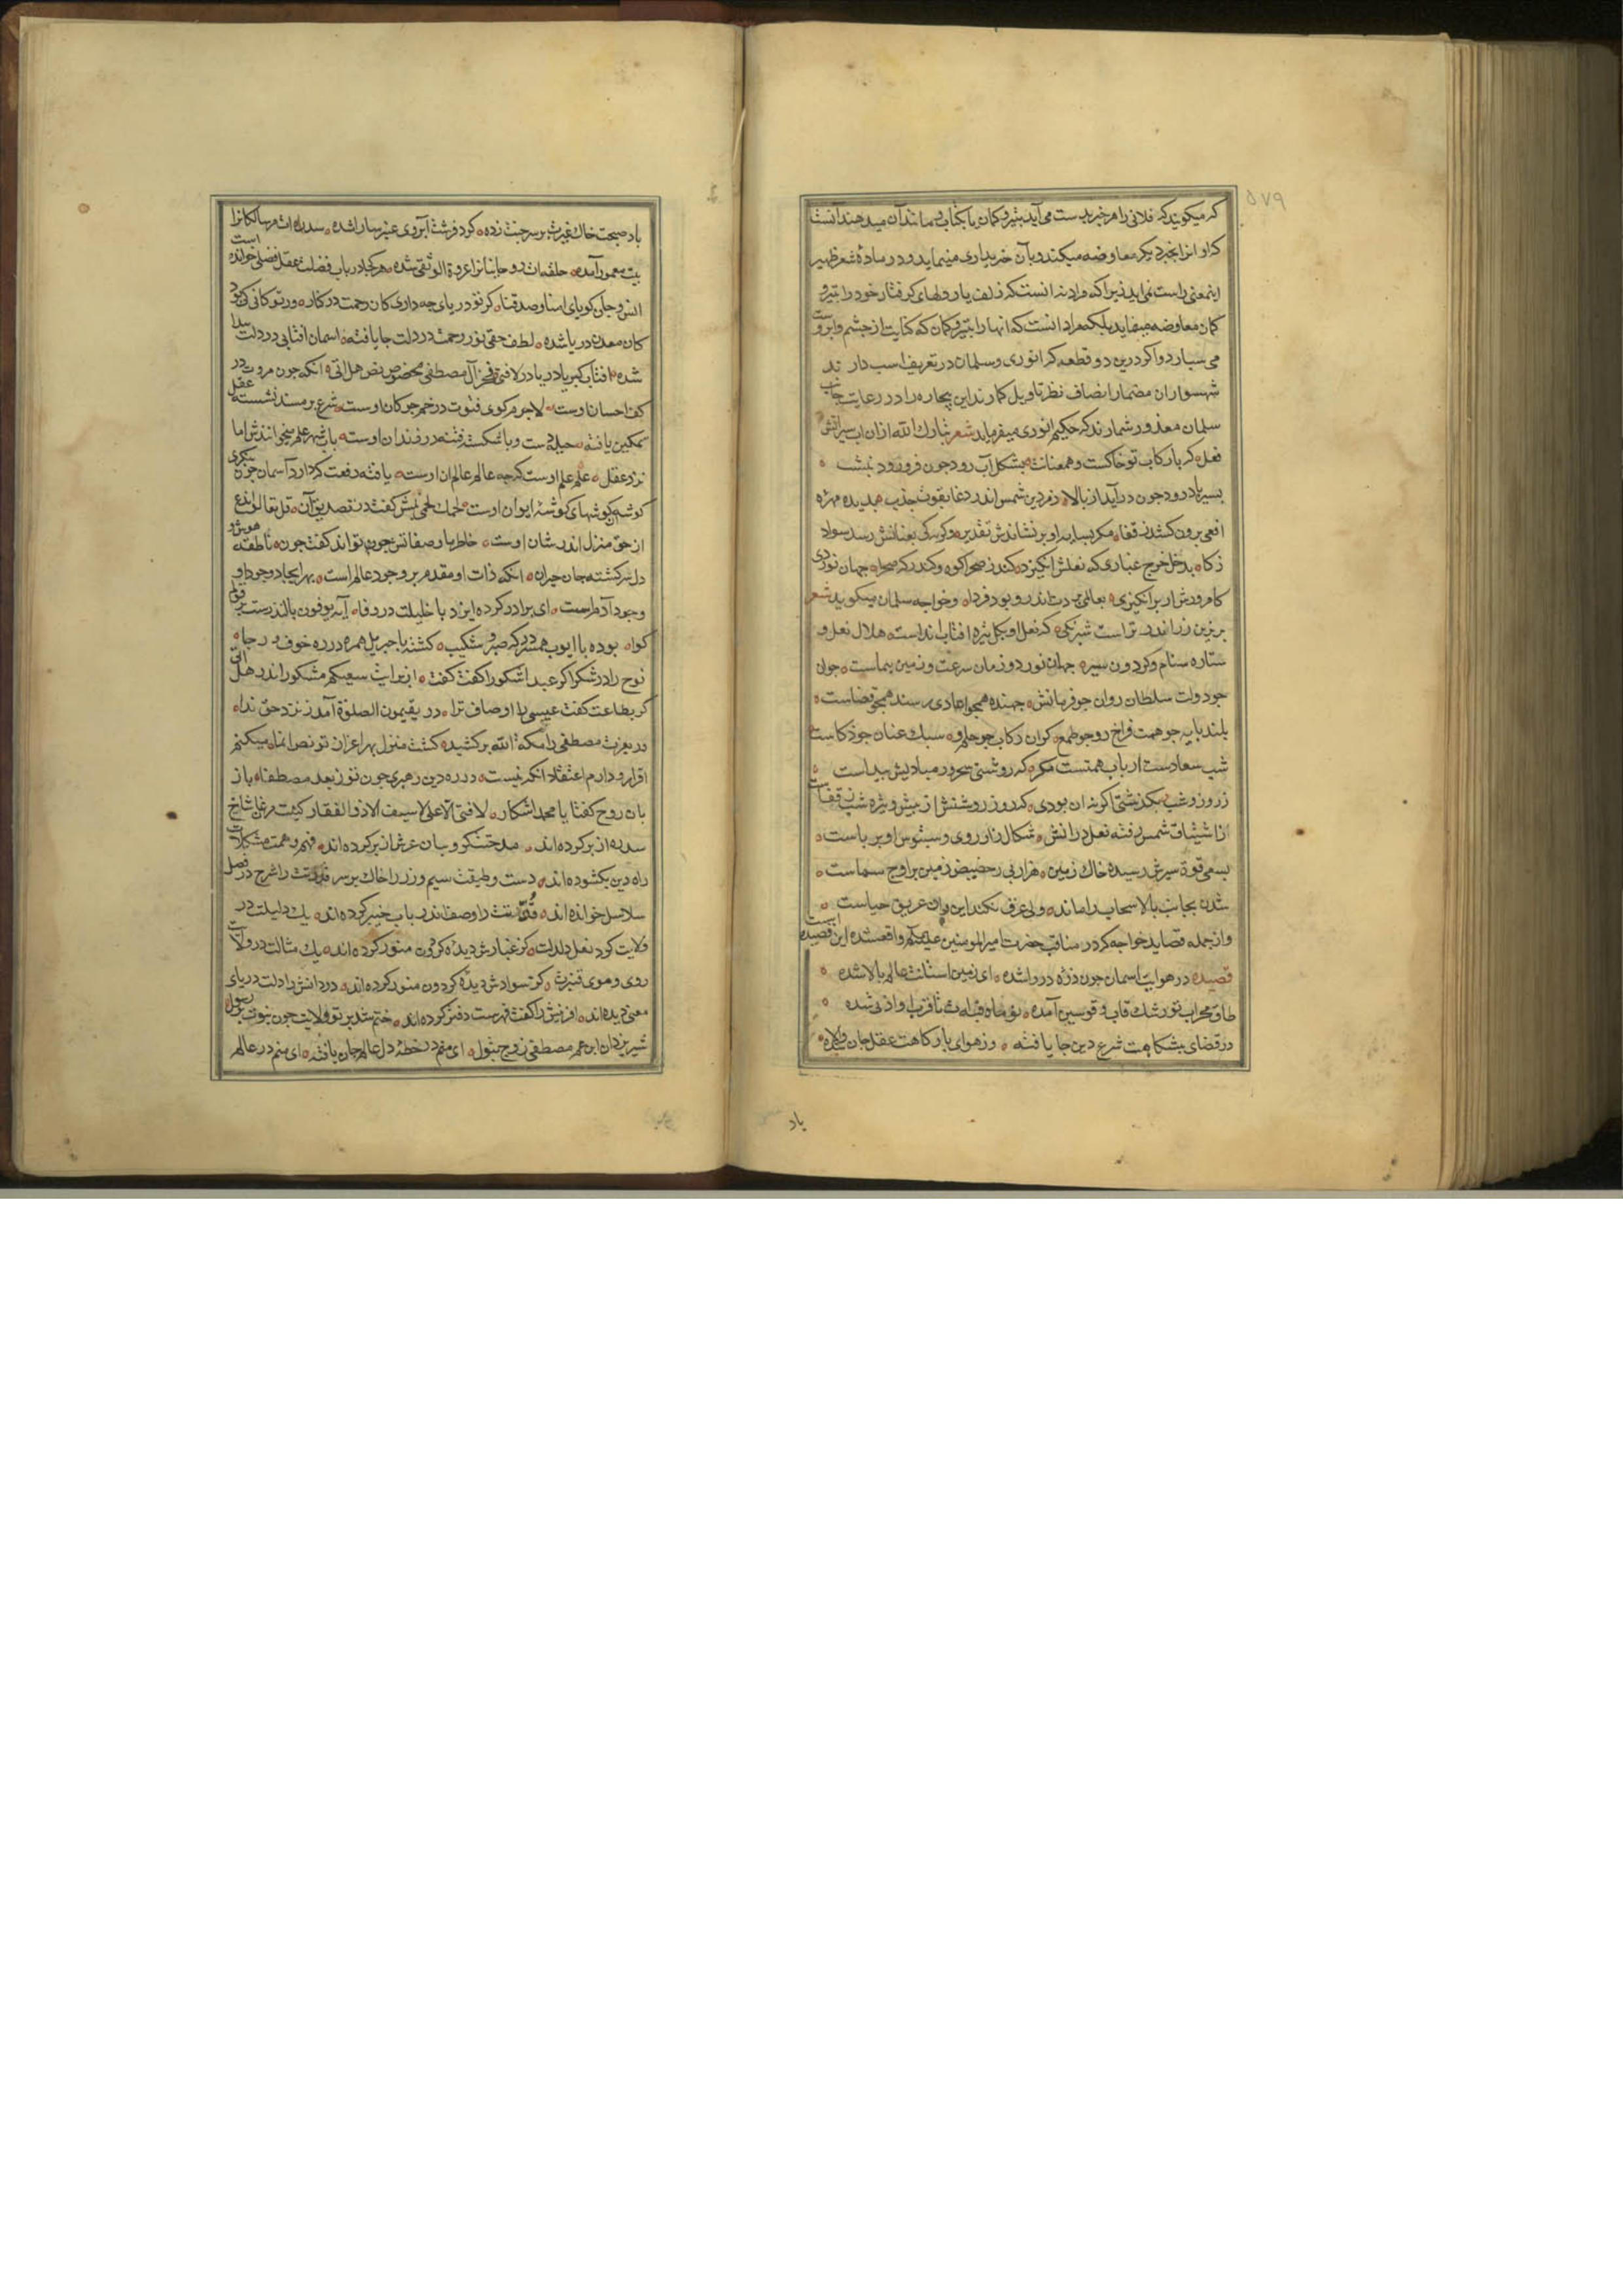 ۵۷۹
که میکویند که فلانی را هر خبر بدست می آید بتیر و کمان یا بکتاب و مانند آن میدهد آنست
که او انرا بخبر دیکر معاوضه میکند و بآن خریداری مینماید و در مادهٔ شعر ظهیر
اینمعنی راست نمی آید زیرا که مراد نه انست که زلف یار دلهای کرفتار خود را بتیر و
کمان معاوضه میفماید بلکه مراد انست که انها را بتیر و کمان که کنایت از چشم و ابروست
می سپارد و اکر درین دو قطعه که انوری و سلمان در تعریف اسب دارند
شهسواران مضمار انصاف نظر تاویل کمارند این بیچاره را در رعایت جانب
سلمان معذور شمارند که حکیم انوری میفرماید شعر تبارك الله ازان اب سیر اتش
فعل که با رکاب تو خاکست و همعنانت بشکل آب رود چون فرو رود بنشیب
بسیر باد رود چون در آید از بالا
افعی برون کشد ز قفا مکر بسایه او بر نشاندش تقدیر و کر نکی بعنانش رسد سواد
ذکا غباری که نعلش انکیزد کند ز صحرا کوه و کند ز که صحرا جهان نوردی
کام ورش ار بر انکیزی بعالمی بردت اندرو بود فردا و خواجه سلمان میکوید شعر
بر زین زر اندر تراست شبرنکی که نعل او هلال نعل و
ستاره سنام و کردون سیر جهان نورد و زمان سرعت و زمین پیماست جوان
چو دولت سلطان روان چو فرمانش جهنده همچو اعادی رسنده همچو قضاست
بلند پایه چو همت فراخ رو چو طمع کران رکاب چو حلم و سبك عنان چو ذکاست
شب سعادت ارباب همتست مکر که روشنی سحر ور مبادیش پیداست
ز روز و شب بکذشتی اکر نه ان بودی که روز روشنش از پیش و تیره شب ز قفاست
از اشتیاق شمس رفته نعل در آتش شکال را ز روی و سینوس او بر پاست
بسمی قوة سیرش رسیده خاك زمین هزار پی ز حضیض زمین بر اوج سماست
شدن بجانب بالا سحاب را ماند ولی عرق نکند این و ان غریق حیاست
و از جمله قصاید خواجه که در مناقب حضرت امیر المومنین علیه السلام واقعشده این قصیده اینست
قصیده در هوایت اسمان چون ذره دروا شده ای زمین استانت عالم بالا شده
طاق محراب تو رشك قاب و قوسین آمده
در فضای پیشکاهت شرع دین جا یافته وز هوای بارکاهت عقل جان والا شده
باد
باد صبحت خاك غیرت بر سر جنت زده کرد فرشت آبروی عنبر سارا شده سدره ات مر سالکانرا
بیت معمور آمده حلقه ات روحانیانرا عروة الوثقی شده هر کجا در باب فضلت عقل فصلی خوانده است
انس و جان کویای امنا و صدقنا کر تو دریای چه داری کان رحمت در کنار ور تو کانی کی بود
کان معدن دریا شده لطف حقی نور رحمت در دلت جا یافته اسمان افتابی در دلت پیدا
شده افتاب کبریا در یا در لافتی فخر آل مصطفی مخصوص نص هل اتی انکه چون مروت در
کف احسان اوست لاجرم کوی فتوت در خم چوکان اوست شرع بر مسند نشسته عقل
تمکین یافته باب شهر علم میخوانندش اما
نزد عقل علم علم اوست که چه عالم عالم ان اوست یافته رفعت که دارد آسمان چون بنکری
کوشه کوشهای کوشهٔ ایوان اوست لحمك لحمی نبیش کفت در تصدیق آن قل تعالوا ندع
از حق منزل اندر شان اوست خاطر باوصفاتش چون تواند کفت چون ناطقه هوش و
دل سرکشته جان حیران انکه ذات او مقدم بر وجود عالم است بهر ایجاد وجود او
وجود آدم است ای برادر کرده ایزد با خلیلت در وفا آیهٔ یوفون بالنذرست بر قولم
کواه بوده با ایوب همسر در که صبر و شکیب کشته با جبریل همره در ره خوف و رجا
نوح را در شکر اکر عبدا شکورا کفت کفت از برایت سعیکم مشکورا اندر هل اتی
کر بطاعت کفت عیسی را اوصاف ترا در یقیمون الصلوة آمد ز نزد حق ندا
در بعزت مصطفی را مکة الله بر کشید کشت منزل بهر اعزاز تو نص انما میکنم
اقرار و دارم اعتقاد انکه نیست در ره دین رهبری چون تو ز بعد مصطفا باز
بان روح کفتا یا محمد اشکار لا فتی الا علی لا سیف الا ذو الفقار کیت مرغان شاخ
سدره از بر کرده اند مدحتت کروبیان عرش از بر کرده اند فهم و همت مشکلات
راه دین بکشوده اند دست و طبعت سیم و زر را خاك بر سر قدرتت را شرح در فصل
سلاسل خوانده اند قوتت را وصف اندر باب خیبر کرده اند یك دلیلت در
ولایت کرد نعل دلدلت کز غبارش دیدهٔ کردون منور کرده اند یك مثالت در ولایت
روی و موی قنبرت کز سوادش دیدهٔ کردون منور کرده اند در دانش را دلت دریای
معنی دیده اند افرینش را کفت فهرست دفتر کرده اند ختم شد بر تو ولایت چون نبوت بر رسول
شیر یزدان ابن عم مصطفی زوج بتول ای منم در خطهٔ دل عالم جان یافته ای منم در عالم